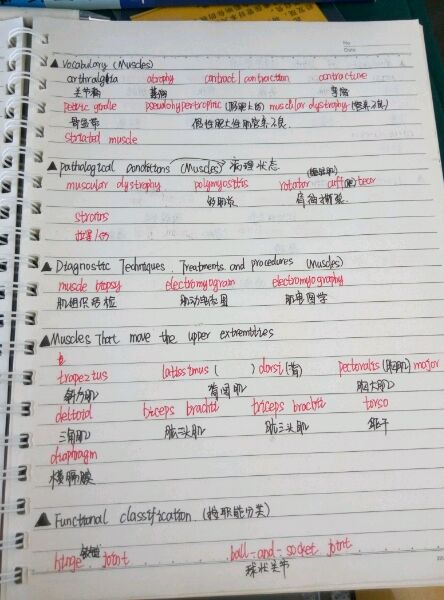 No
Date
▲ Vocabulary (Muscles)
arthralgia atrophy contract/contraction contracture
关节痛 萎缩 挛缩
pelvic girdle pseudohypertrophic (假肥大的) muscular dystrophy (营养不良)
骨盆带 假性肥大性肌营养不良
striated muscle
▲ pathological conditions (Muscles) 病理状态
muscular dystrophy polymyositis rotator cuff tear
多肌炎 肩袖撕裂
strains
拉紧/伤
▲ Diagnostic Techniques, Treatments and procedures (Muscles)
muscle biopsy electromyogram electromyography
肌组织活检 肌动电流图 肌电图学
▲ Muscles That move the upper extremities
trapezius latissimus ( ) dorsi (背) pectoralis (胸肌) major
斜方肌 背阔肌 胸大肌
deltoid biceps brachii triceps brachii torso
三角肌 肱二头肌 肱三头肌 躯干
diaphragm
横隔膜
▲ Functional classification (按职能分类)
hinge joint ball-and-socket joint
球状关节